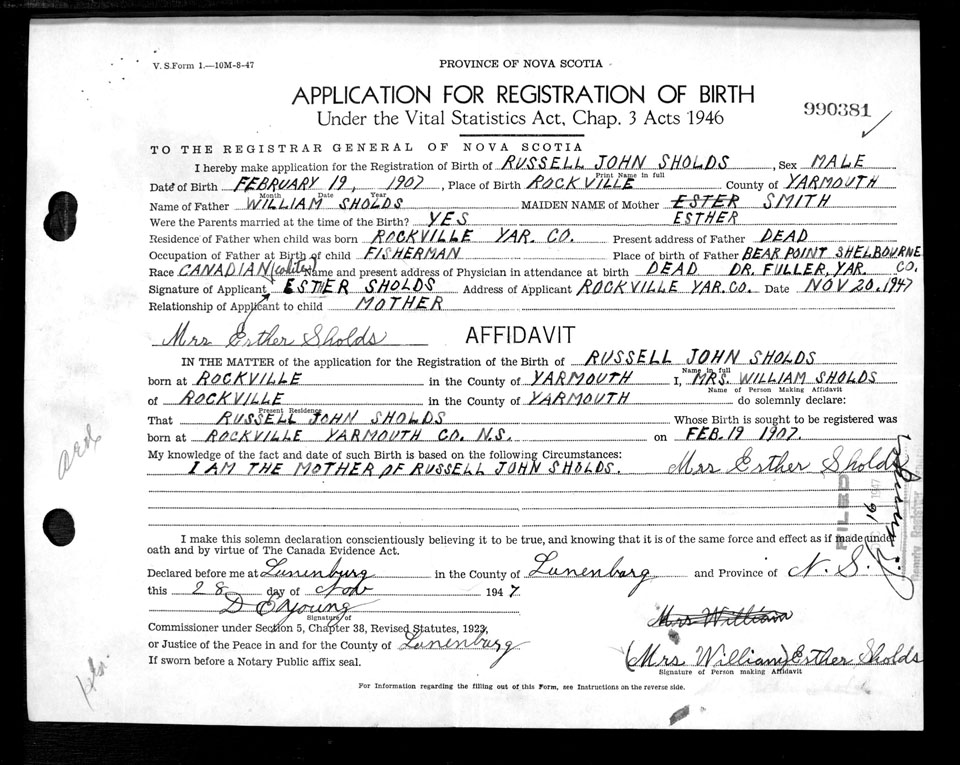 V. S. Form 1.—10M-8-47
PROVINCE OF NOVA SCOTIA
APPLICATION FOR REGISTRATION OF BIRTH
990381
Under the Vital Statistics Act, Chap. 3 Acts 1946
TO THE REGISTRAR GENERAL OF NOVA SCOTIA
I hereby make application for the Registration of Birth of RUSSELL JOHN SHOLDS, Sex MALE
Print Name in full
Date of Birth FEBRUARY 19, 1907, Place of Birth ROCKVILLE County of YARMOUTH
Month Date Year
Name of Father WILLIAM SHOLDS MAIDEN NAME of Mother ESTER SMITH
Were the Parents married at the time of the Birth? YES ESTHER
Residence of Father when child was born ROCKVILLE YAR. CO. Present address of Father DEAD
Occupation of Father at Birth of child FISHERMAN Place of birth of Father BEAR POINT SHELBOURNE
Race CANADIAN (white) Name and present address of Physician in attendance at birth DEAD DR. FULLER, YAR. CO.
Signature of Applicant ESTHER SHOLDS Address of Applicant ROCKVILLE YAR. CO. Date NOV 20, 1947
Relationship of Applicant to child MOTHER
Mrs Esther Sholds AFFIDAVIT
IN THE MATTER of the application for the Registration of the Birth of RUSSELL JOHN SHOLDS
Name in full
born at ROCKVILLE in the County of YARMOUTH I, MRS. WILLIAM SHOLDS
Name of Person Making Affidavit
of ROCKVILLE in the County of YARMOUTH do solemnly declare:
Present Residence
That RUSSELL JOHN SHOLDS Whose Birth is sought to be registered was
born at ROCKVILLE YARMOUTH CO. N.S. on FEB. 19 1907.
My knowledge of the fact and date of such Birth is based on the following Circumstances:
I AM THE MOTHER OF RUSSELL JOHN SHOLDS. Mrs Esther Sholds
FILED
1947
I make this solemn declaration conscientiously believing it to be true, and knowing that it is of the same force and effect as if made under
oath and by virtue of The Canada Evidence Act.
Declared before me at Lunenburg in the County of Lunenburg and Province of N. S.
this 28 day of Nov 1947.
D E Young
Signature of
Mrs William
Commissioner under Section 5, Chapter 38, Revised Statutes, 1923,
or Justice of the Peace in and for the County of Lunenburg
If sworn before a Notary Public affix seal.
(Mrs William) Esther Sholds
Signature of Person making Affidavit
For Information regarding the filling out of this Form, see Instructions on the reverse side.